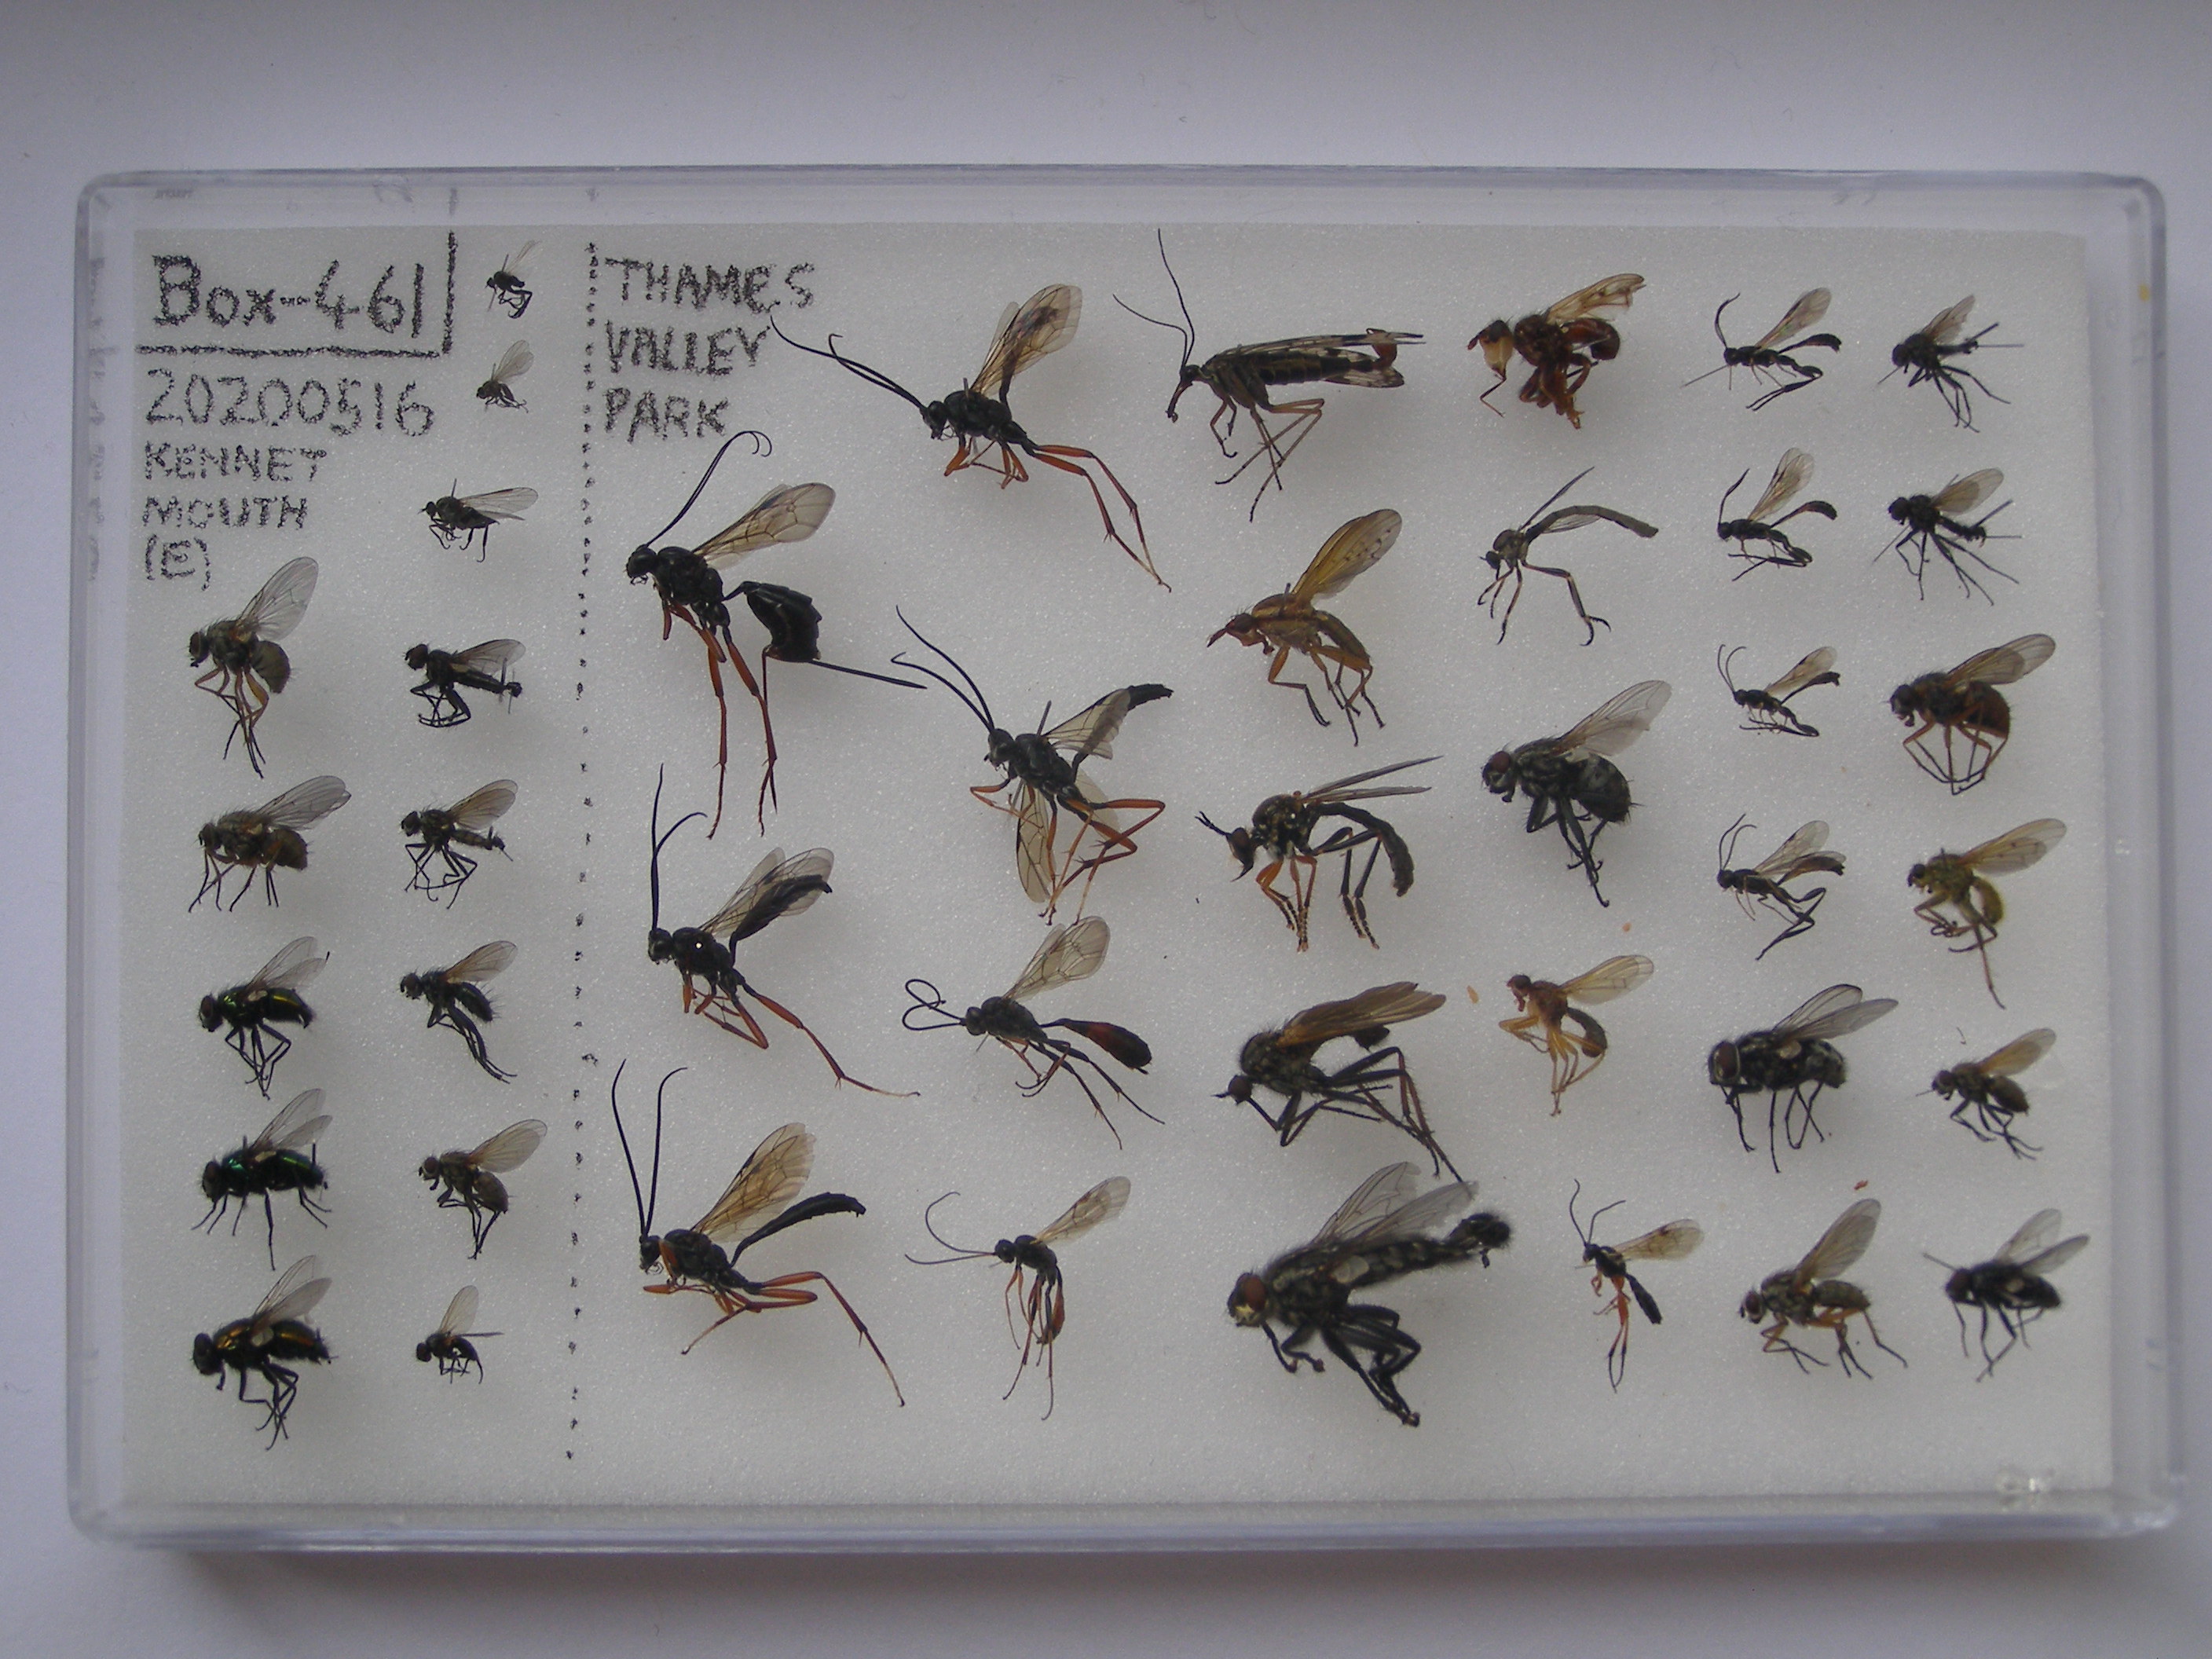 Box-461
20200516
KENNET
MOUTH
(E)
THAMES
VALLEY
PARK